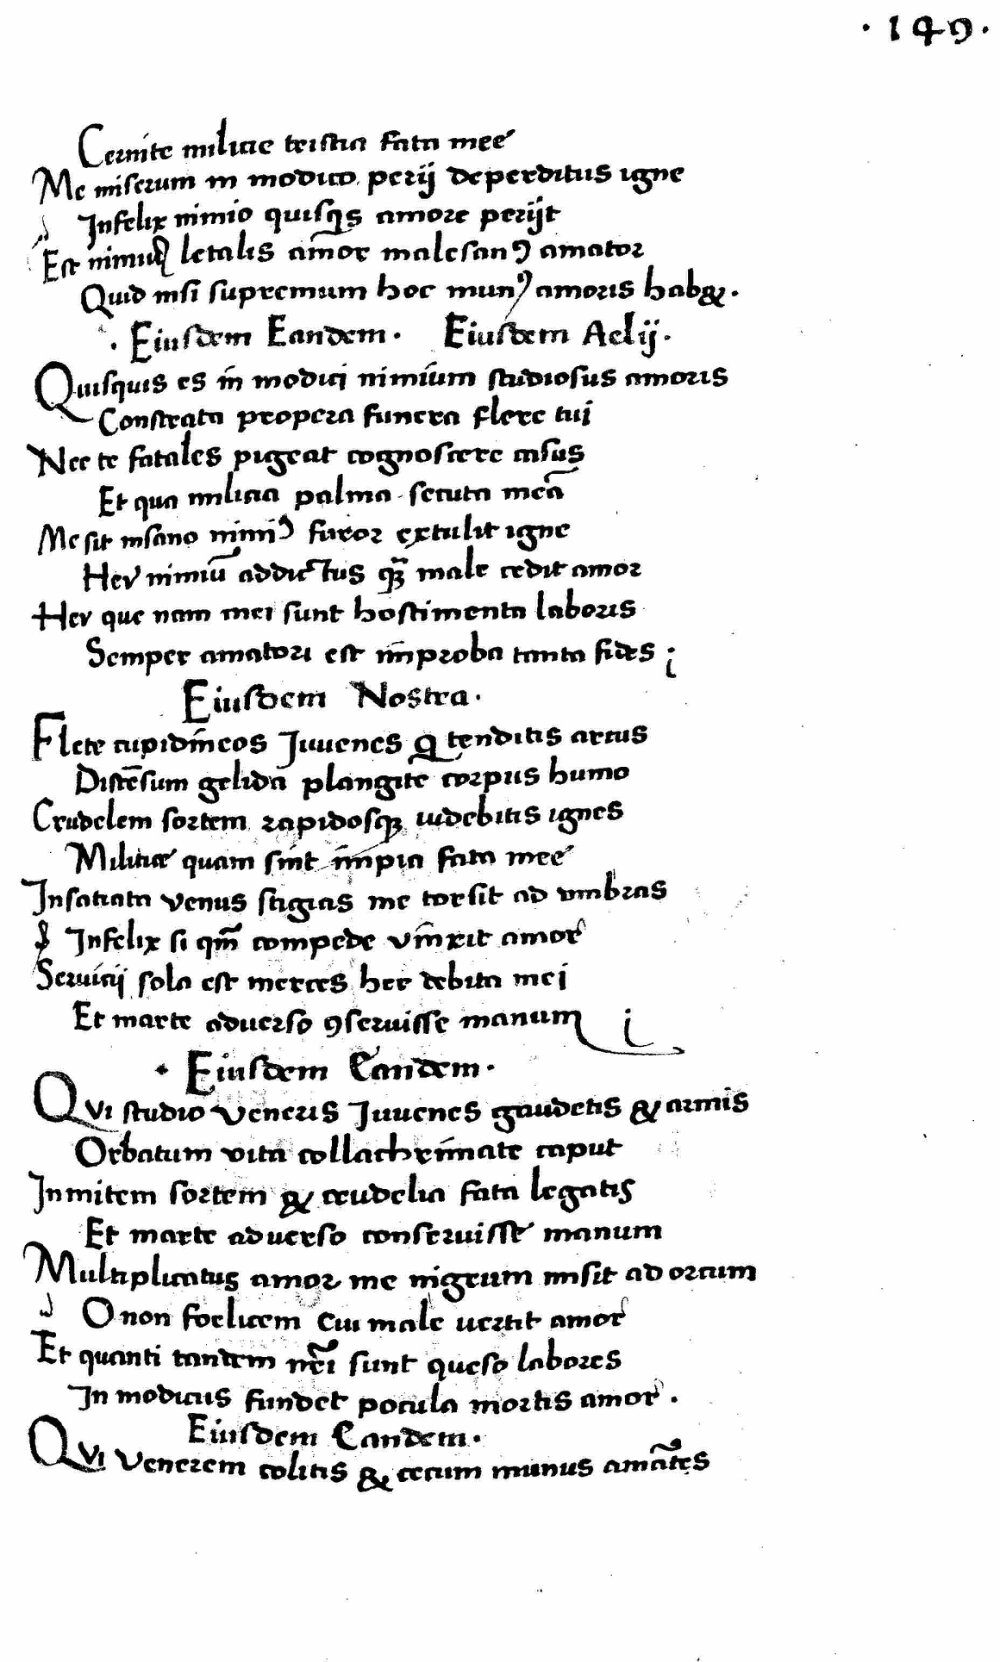 · 149 ·
Cernite militie tristia fata mee
Me miserum in modico perij deperditus igne
Infelix nimio quisq̧s amore perijt
Est nimiuꝫ letalis amor malesanꝰ amator
Quid nisi supremum hoc munꝰ amoris hab&.
· Eiusdem Eandem · Eiusdem Aelij ·
Quisquis es im̄ modici nimium studiosus amoris
Constrata propera funera flere tui
Nec te fatales pigeat cognoscere casus
Et qua militia palma secuta meā
Me sit insano nimiꝰ furor extulit igne
Heu nimiū addictus quā male cedit amor
Heu que nam mei sunt hostimenta laboris
Semper amatori est im̄proba tanta fides
Eiusdem Nostra ·
Flete cupidineos Iuuenes q̄ tenditis arcus
Distēsum gelida plangite corpus humo
Crudelem sortem rapidosqꝫ uidebitis ignes
Militiæ quam sint im̄pia fata mee
Insatiata Venus stigias me torsit ad vmbras
Infelix si qm̄ compede vinxit amor
Seruitij sola est merces hec debita mei
Et marte aduerso ꝯseruisse manum
· Eiusdem Eandem ·
Qvi studio Veneris Iuuenes gaudetis & armis
Orbatum vita collachrimate caput
Inmitem sortem & crudelia fata legatis
Et marte aduerso conseruisse manum
Multiplicatus amor me nigrum misit ad orcum
O non foelicem cui male uertit amor
Et quanti tandem mei sunt queso labores
In modicus fundet pocula mortis amor ·
Eiusdem Eandem ·
Qvi Venerem colitis & cecum munus amātes